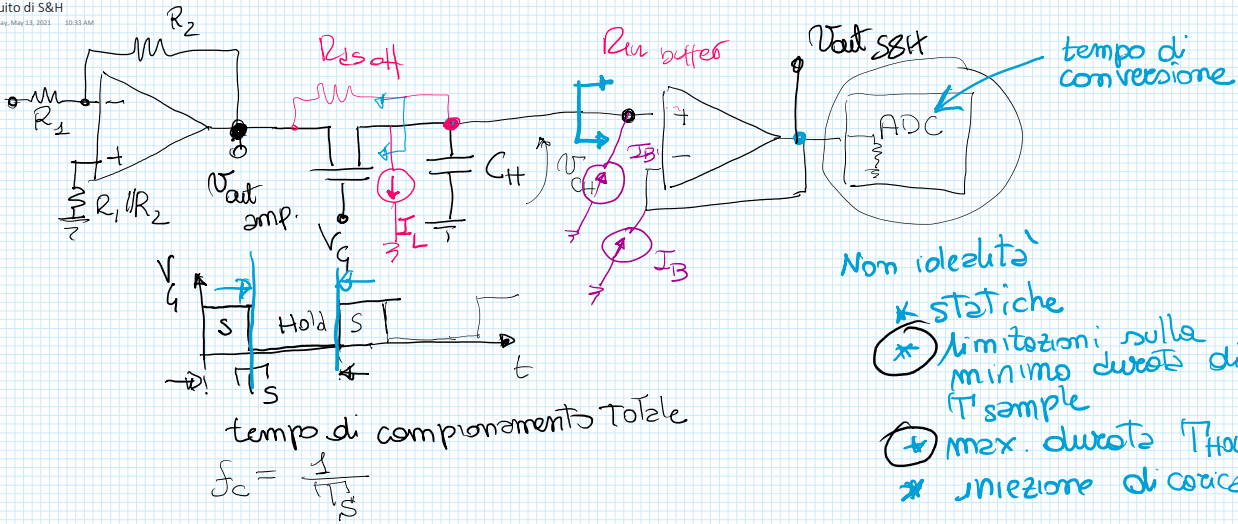 uito di S&H
ay, May 13, 2021 10:33 AM
R2
R1
R1//R2
Vout
amp.
Rdsoff
VG
IL
CH
VCH
Rin buffer
IB
IB
+
-
Vout S&H
ADC
tempo di
conversione
VG
S
Hold
S
t
S
tempo di campionamento Totale
fc = 1/TS
Non idealità
* statiche
* limitazioni sulla
minimo durata di
T sample
* max. durata THO
* iniezione di caric